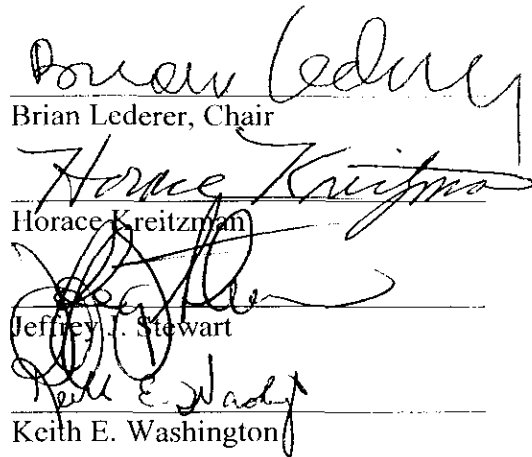 Brian Lederer
Brian Lederer, Chair
Horace Kreitzman
Horace Kreitzman
Jeffrey J. Stewart
Keith E.
Keith E. Washington